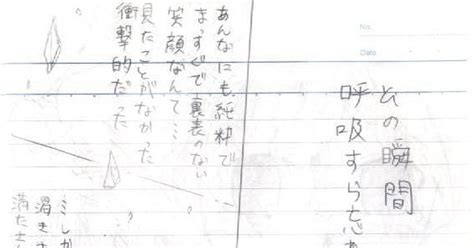 No.
Date
その瞬間
呼吸すら忘
あんなにも純粋で
まっすぐで裏表のない
笑顔なんて…
見たことがなかった
衝撃的だった
ミしか
渇き
満たさ